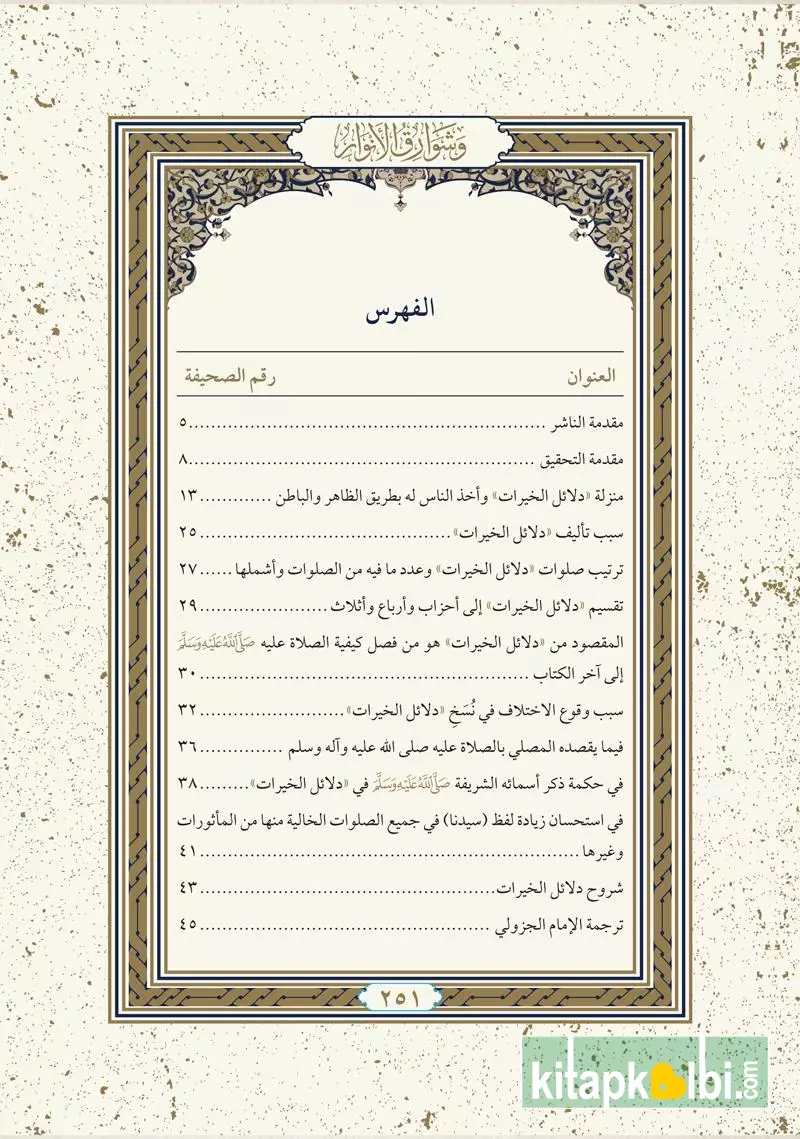 وَشَوَارِقُ الْأَنْوَارِ
الفهرس
العنوان رقم الصحيفة
مقدمة الناشر ................................................................ ٥
مقدمة التحقيق ................................................................ ٨
منزلة «دلائل الخيرات» وأخذ الناس له بطريق الظاهر والباطن ............. ١٣
سبب تأليف «دلائل الخيرات» ............................................. ٢٥
ترتيب صلوات «دلائل الخيرات» وعدد ما فيه من الصلوات وأشملها ...... ٢٧
تقسيم «دلائل الخيرات» إلى أحزاب وأرباع وأثلاث ...................... ٢٩
المقصود من «دلائل الخيرات» هو من فصل كيفية الصلاة عليه صَلَّى اللَّهُ عَلَيْهِ وَسَلَّمَ
إلى آخر الكتاب ............................................................ ٣٠
سبب وقوع الاختلاف في نُسَخِ «دلائل الخيرات» .......................... ٣٢
فيما يقصده المصلي بالصلاة عليه صلى الله عليه وآله وسلم ............... ٣٦
في حكمة ذكر أسمائه الشريفة صَلَّى اللَّهُ عَلَيْهِ وَسَلَّمَ في «دلائل الخيرات» ......... ٣٨
في استحسان زيادة لفظ (سيدنا) في جميع الصلوات الخالية منها من المأثورات
وغيرها .................................................................... ٤١
شروح دلائل الخيرات ..................................................... ٤٣
ترجمة الإمام الجزولي .................................................... ٤٥
٢٥١
kitapkalbi.com